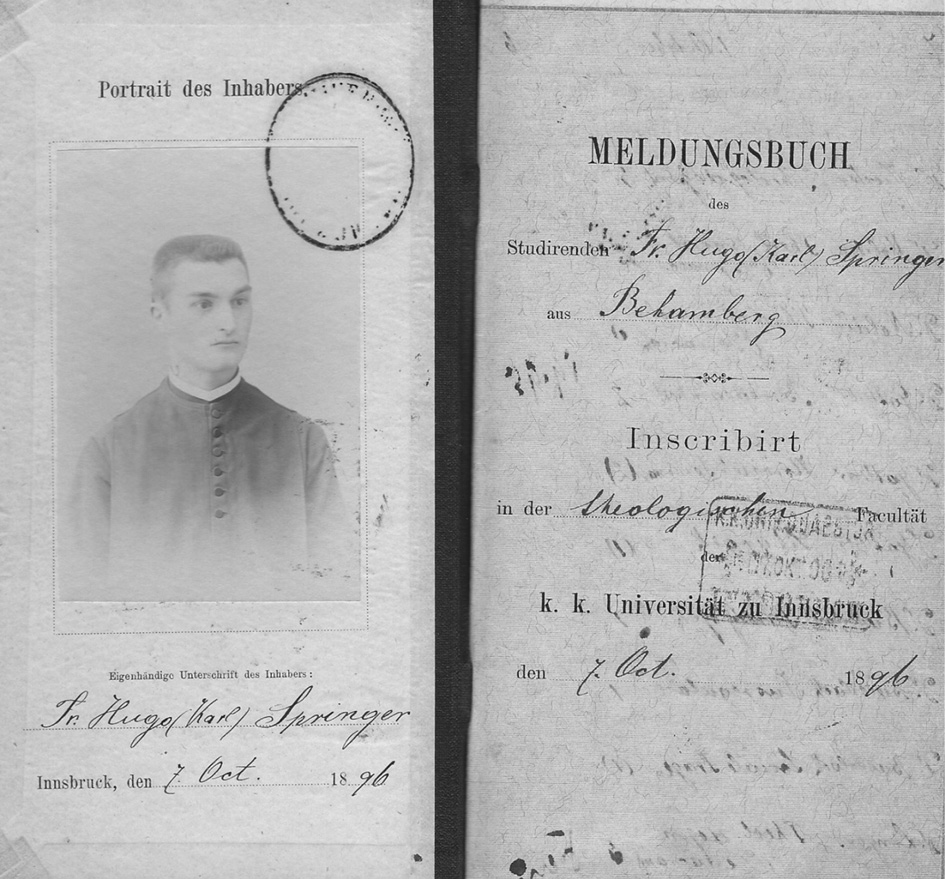 Portrait des Inhabers.
Eigenhändige Unterschrift des Inhabers:
Fr. Hugo (Karl) Springer
Innsbruck, den 7. Oct. 1896
MELDUNGSBUCH
des
Studirenden Fr. Hugo (Karl) Springer
aus Behamberg
Inscribirt
in der theologischen Facultät
der
k. k. Universität zu Innsbruck
den 7. Oct. 1896.